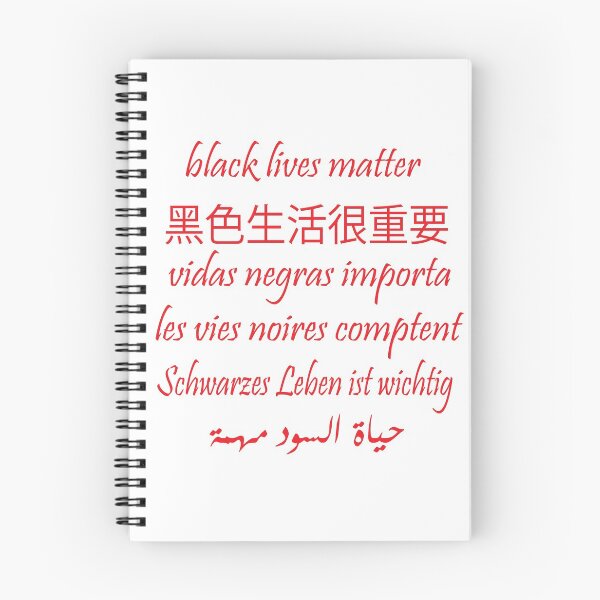 black lives matter
黑色生活很重要
vidas negras importa
les vies noires comptent
Schwarzes Leben ist wichtig
حياة السود مهمة